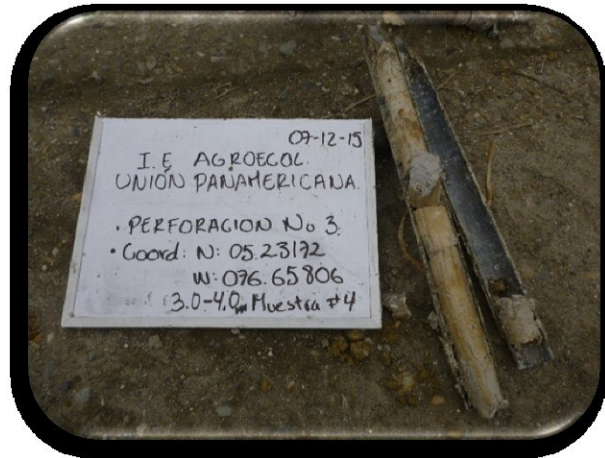 07-12-15
I.E AGROECOL.
UNIÓN PANAMERICANA.
• PERFORACION No 3.
• Coord: N: 05.23172
W: 076.65806
3.0-4.0m Muestra #4